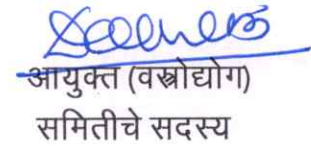 आयुक्त (वस्त्रोद्योग)
समितीचे सदस्य